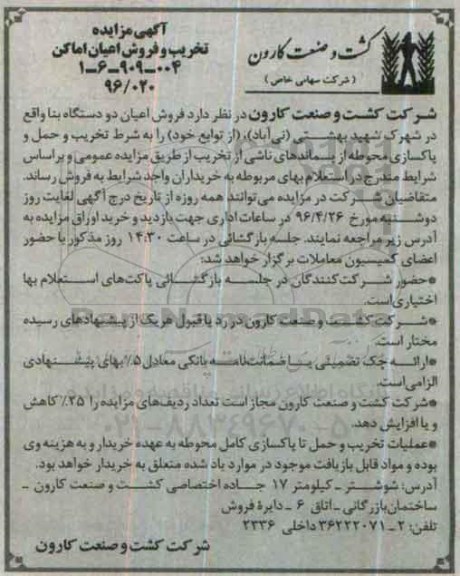 آگهی مزایده
تخریب و فروش اعیان اماکن
۱-۶-۹۰۹-۰۰۴
۹۶/۰۲۰
کشت و صنعت کارون
(شرکت سهامی خاص)
شرکت کشت و صنعت کارون در نظر دارد فروش اعیان دو دستگاه بنا واقع
در شهرک شهید بهشتی (نی‌آباد)، (از توابع خود) را به شرط تخریب و حمل و
پاکسازی محوطه از پسماندهای ناشی از تخریب از طریق مزایده عمومی و براساس
شرایط مندرج در استعلام بهای مربوطه به خریداران واجد شرایط به فروش رساند.
متقاضیان شرکت در مزایده می‌توانند همه روزه از تاریخ درج آگهی لغایت روز
دوشنبه مورخ ۹۶/۴/۲۶ در ساعات اداری جهت بازدید و خرید اوراق مزایده به
آدرس زیر مراجعه نمایند. جلسه بازگشائی در ساعت ۱۴:۳۰ روز مذکور با حضور
اعضای کمیسیون معاملات برگزار خواهد شد:
*حضور شرکت‌کنندگان در جلسه بازگشائی پاکت‌های استعلام بها
اختیاری است.
*شرکت کشت و صنعت کارون در رد یا قبول هریک از پیشنهادهای رسیده
مختار است.
*ارائه چک تضمینی یا ضمانت‌نامه بانکی معادل ۵٪ بهای پیشنهادی
الزامی است.
*شرکت کشت و صنعت کارون مجاز است تعداد ردیف‌های مزایده را ۲۵٪ کاهش
و یا افزایش دهد.
*عملیات تخریب و حمل تا پاکسازی کامل محوطه به عهده خریدار و به هزینه وی
بوده و مواد قابل بازیافت موجود در موارد یاد شده متعلق به خریدار خواهد بود.
آدرس: شوشتر ـ کیلومتر ۱۷ جاده اختصاصی کشت و صنعت کارون ـ
ساختمان بازرگانی ـ اتاق ۶ ـ دایره فروش
تلفن: ۲ـ۳۶۲۲۲۰۷۱ داخلی ۲۳۳۶
شرکت کشت و صنعت کارون
۰۲۱-۸۸۳۴۹۶۷۰-۵